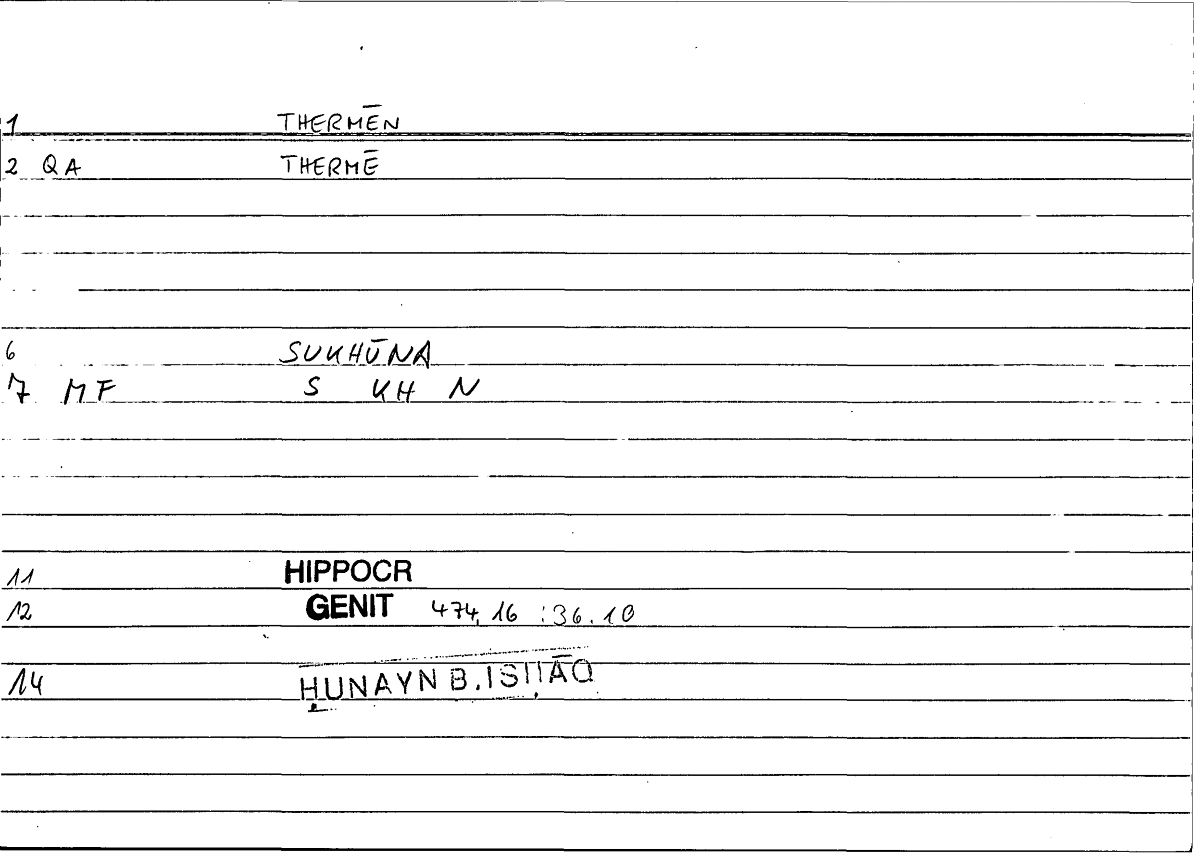 1 THERMĒN
2 QA THERMĒ
6 SUKHŪNA
7 MF S KH N
11 HIPPOCR
12 GENIT 474, 16 :36.10
14 ḤUNAYN B.ISḤĀQ